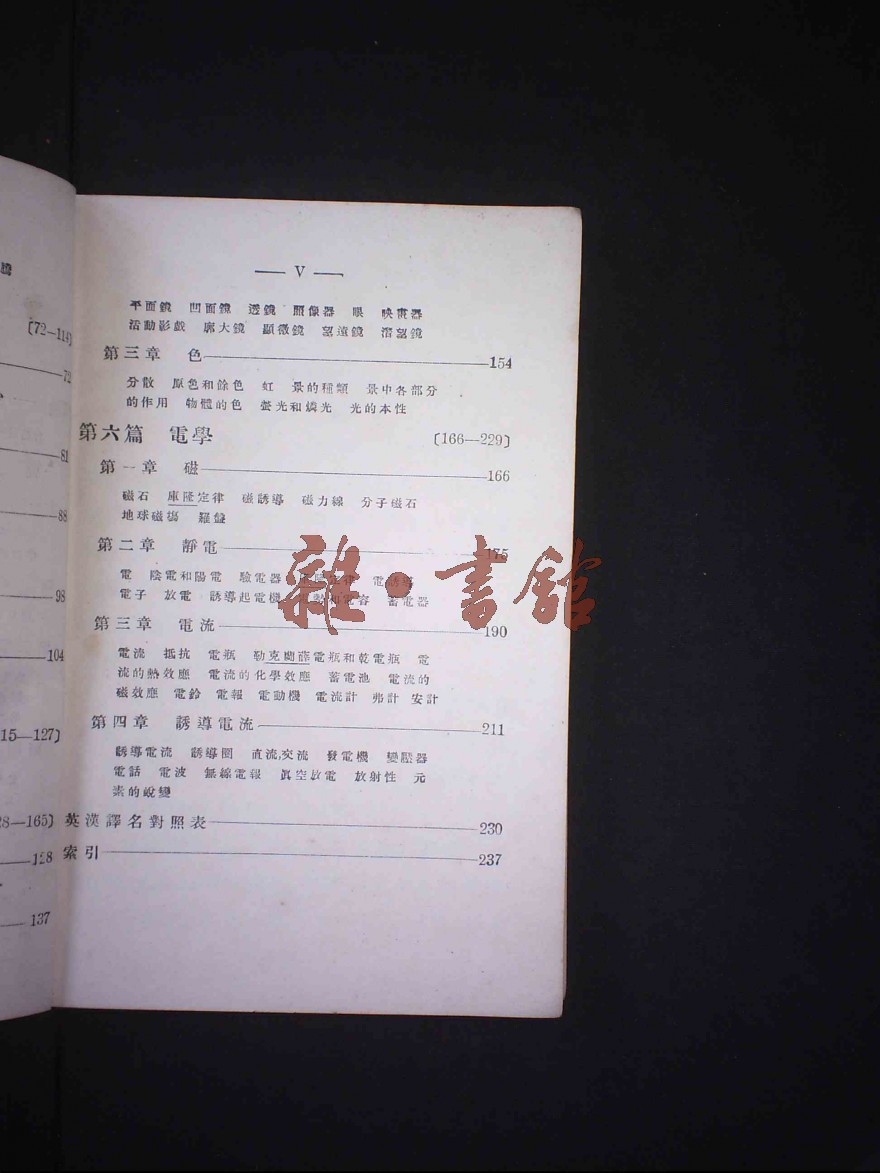 — V —
平面鏡 凹面鏡 透鏡 照像器 眼 映畫器
活動影戲 廓大鏡 顯微鏡 望遠鏡 潛望鏡
第三章 色 154
分散 原色和餘色 虹 景的種類 景中各部分
的作用 物體的色 螢光和燐光 光的本性
第六篇 電學 〔166—229〕
第一章 磁 166
磁石 庫隆定律 磁誘導 磁力線 分子磁石
地球磁場 羅盤
第二章 靜電 175
電 陰電和陽電 驗電器 定律 電誘導
電子 放電 誘導起電機 和電容 蓄電器
第三章 電流 190
電流 抵抗 電瓶 勒克蘭薛電瓶和乾電瓶 電
流的熱效應 電流的化學效應 蓄電池 電流的
磁效應 電鈴 電報 電動機 電流計 弗計 安計
第四章 誘導電流 211
誘導電流 誘導圈 直流,交流 發電機 變壓器
電話 電波 無線電報 眞空放電 放射性 元
素的蛻變
英漢譯名對照表 230
索引 237
〔72—114〕
72
81
88
98
104
15—127〕
28—165〕
128
137
雜·書館